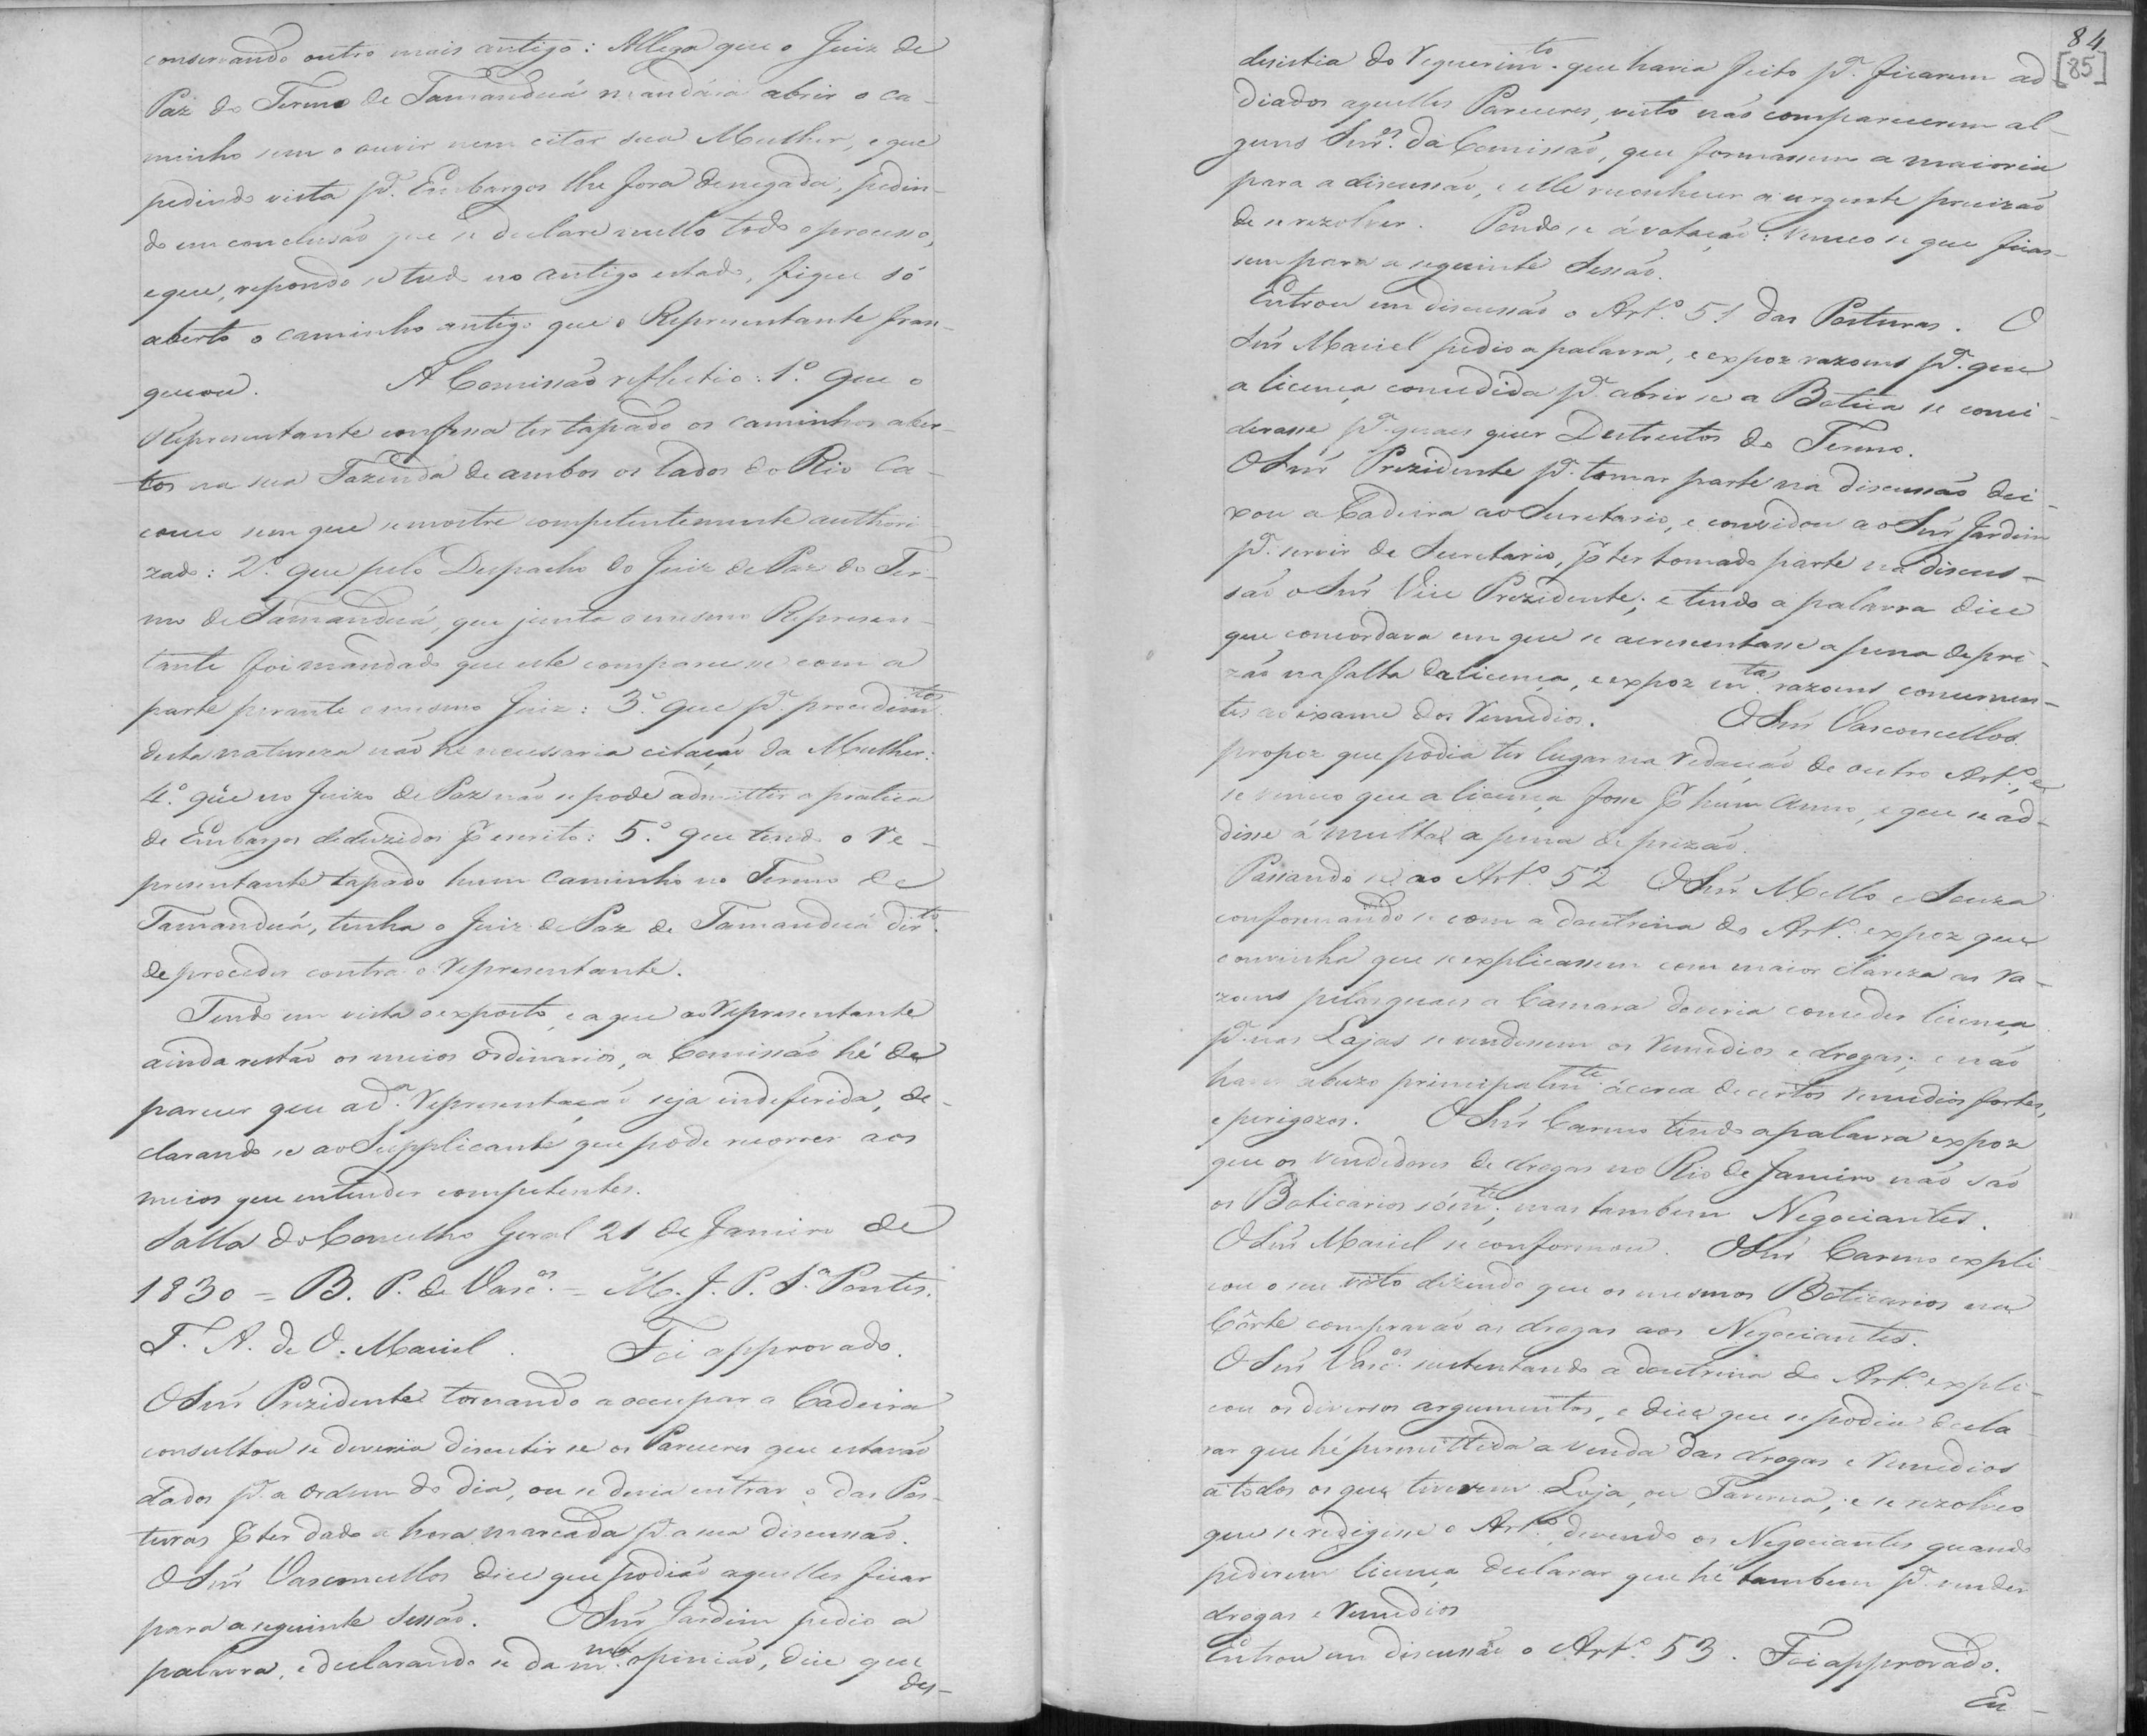 conservando outro mais antigo: Allega que o Juiz de
Paz do Termo de Tamanduá mandára abrir o ca-
minho sem o ouvir nem citar sua Mulher, e que
pedindo vista pª. Embargos lhe fora denegada, pedin-
do em conclusão que se declare nullo todo o processo,
e que, repondo se tudo no antigo estado, fique só
aberto o caminho antigo que o Representante fran-
queou. A Comissão reflectio: 1º. Que o
Representante confessa ter tapado os caminhos aber-
tos na sua Fazenda de ambos os lados do Rio Ca-
coco sem que se mostre competentemente authori-
zado: 2º. Que pelo Despacho do Juiz de Paz do Ter-
mo de Tamanduá, que junta o mesmo Represen-
tante foi mandado que este comparecesse com a
parte perante o mesmo Juiz: 3º. Que pª. procedimtos.
desta natureza não hé necessaria citação da Mulher:
4º. que no Juizo de Paz não se pode admittir a pratica
de Embargos deduzidos pr escrito: 5º. que tendo o re-
presentante tapado hum Caminho no Termo de
Tamanduá, tinha o Juiz de Paz de Tamanduá dirto.
de proceder contra o representante.
Tendo em vista o exposto, e a que ao representante
ainda restão os meios ordinarios, a Comissão hé de
parecer que a dª. representação seja indeferida, de-
clarando se ao Supplicante que pode recorrer aos
meios que entender competentes.
Salla do Conselho Geral 21 de Janeiro de
1830 = B. P. de Vascos. = M. J. P. Sª. Pontes.
F. A. de O. Maciel. Foi approvado.
O Snr Prezidente tornando a occupar a Cadeira
consultou se deveria discutir se os Pareceres que estavão
dados pª. a ordem do dia, ou se devia entrar o das Pos-
turas pr ter dado a hora marcada pª. a sua discussão.
O Snr Vasconcellos dice que podião aquelles ficar
para a seguinte Sessão. O Snr Jardim pedio a
palavra, e declarando se da mma. opinião, dice que
des-
84
[85]
desistia do requerimto. que havia feito pª. ficarem ad
diados aquelles Pareceres, visto não comparecerem al-
guns Snrs. da Comissão, que formassem a maioria
para a discussão, e elle reconhecer a urgente precizão
de se rezolver. Pondo se á votação: venceo se que ficas-
sem para a seguinte Sessão.
Entrou em discussão o Artº. 51 das Posturas. O
Snr Maciel pedio a palavra, e expoz razoens pª. que
a licença concedida pª. abrir se a Botica se conci-
derasse pª. quaes quer Destrictos do Termo.
O Snr Prezidente pª. tomar parte na discussão dei-
xou a Cadeira ao Secretario, e convidou ao Snr Jardim
pª. servir de Secretario, pr ter tomado parte na discus-
são o Snr Vice Prezidente; e tendo a palavra dice
que concordava em que se acresentasse a pena de pri-
zão na falta da licença, e expoz mtas. razoens concernen-
tes ao exame dos remedios. O Snr Vasconcellos
propoz que podia ter lugar na redação de outro Artº., e
se venceo que a licença fosse pr hum anno, e que se ad-
disse á multa a pena de prizão.
Passando se ao Artº. 52 O Snr Mello e Souza
conformando se com a doutrina do Artº. expoz que
convinha que se explicassem com maior clareza as ra-
zoens pelas quaes a Camara deveria conceder licença
pª. nas Lojas se vendessem os remedios e drogas; e não
haver abuzo principalmte. ácerca de certos remedios fortes,
e perigozos. O Snr Carmo tendo a palavra expoz
que os vendedores de drogas no Rio de Janeiro não são
os Boticarios sómte.; mas tambem Negociantes.
O Snr Maciel se conformou. O Snr Carmo expli-
cou o seu voto dizendo que os mesmos Boticarios na
Côrte compravão as drogas aos Negociantes.
O Snr Vascos. sustentando a doutrina do Artº. expli-
cou os diversos argumentos, e dice que se podia decla-
rar que hé permittida a venda das drogas e remedios
a todos os que tiverem Loja, ou Taverna; e se rezolveo
que se redigisse o Artº. devendo os Negociantes quando
pedirem licença declarar que hé tambem pª. vender
drogas e remedios
Entrou em discussão o Artº. 53. Foi approvado.
En-